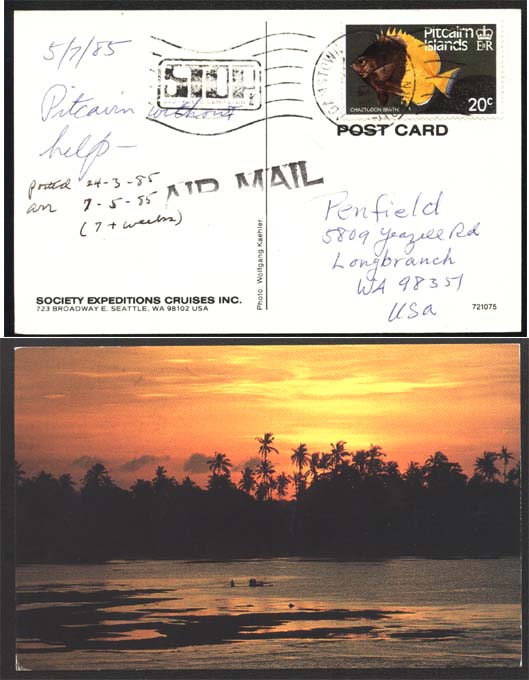 5/7/85
Pitcairn without
help-
posted 24-3-85
arr 7-5-85
(7+ weeks)
AIR MAIL
SOCIETY EXPEDITIONS CRUISES INC.
723 BROADWAY E. SEATTLE, WA 98102 USA
Photo: Wolfgang Kaehler.
Pitcairn
Islands
E R
20c
ADAMSTOWN
POST CARD
Penfield
5809 Yeazell Rd
Longbranch
WA 98351
USA
721075